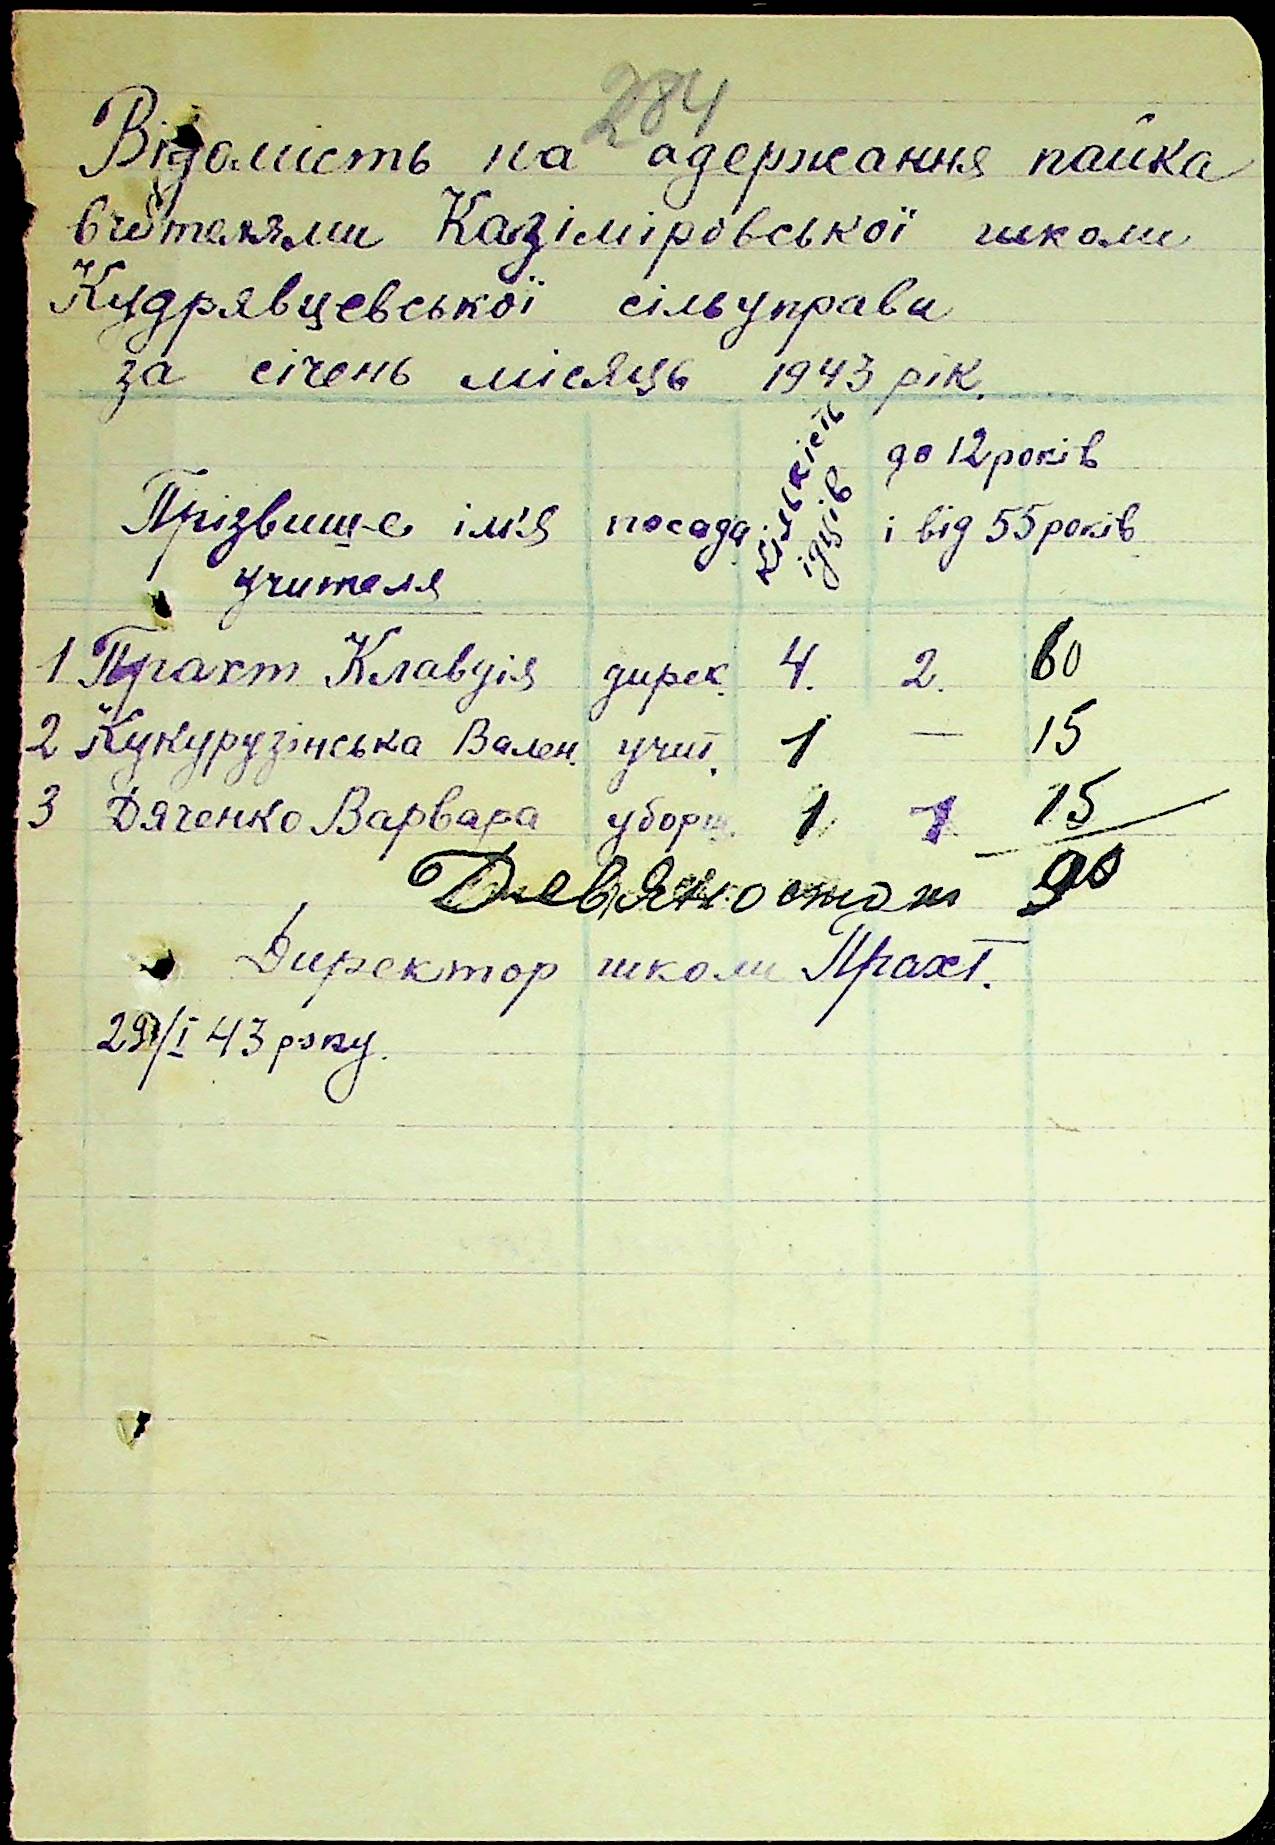 284
Відомисть на адержання пайка
вчителями Казіміровської школи
Кудрявцевської сільуправи
за січень місяць 1943 рік.
Прізвище ім'я посада кількість їдців до 12 років
учителя і від 55 років
1 Прахт Клавдія дирек. 4. 2. 60
2 Кукурузінська Вален. учит. 1 — 15
3 Дяченко Варвара уборщ. 1 1 15
90
Директор школи Прахт.
29/I 43 року.